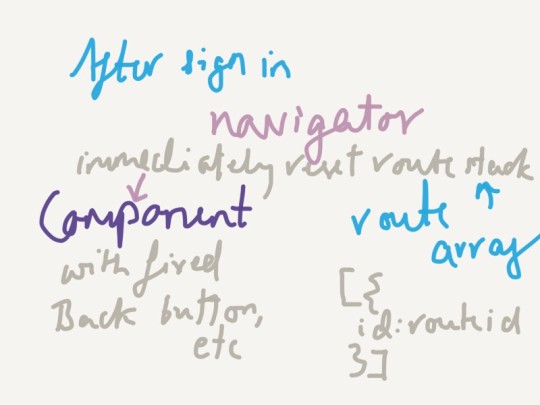 After sign in
navigator
immediately reset route stack
Component
with fixed
Back button,
etc
route
array
[{
id: routeid
}]